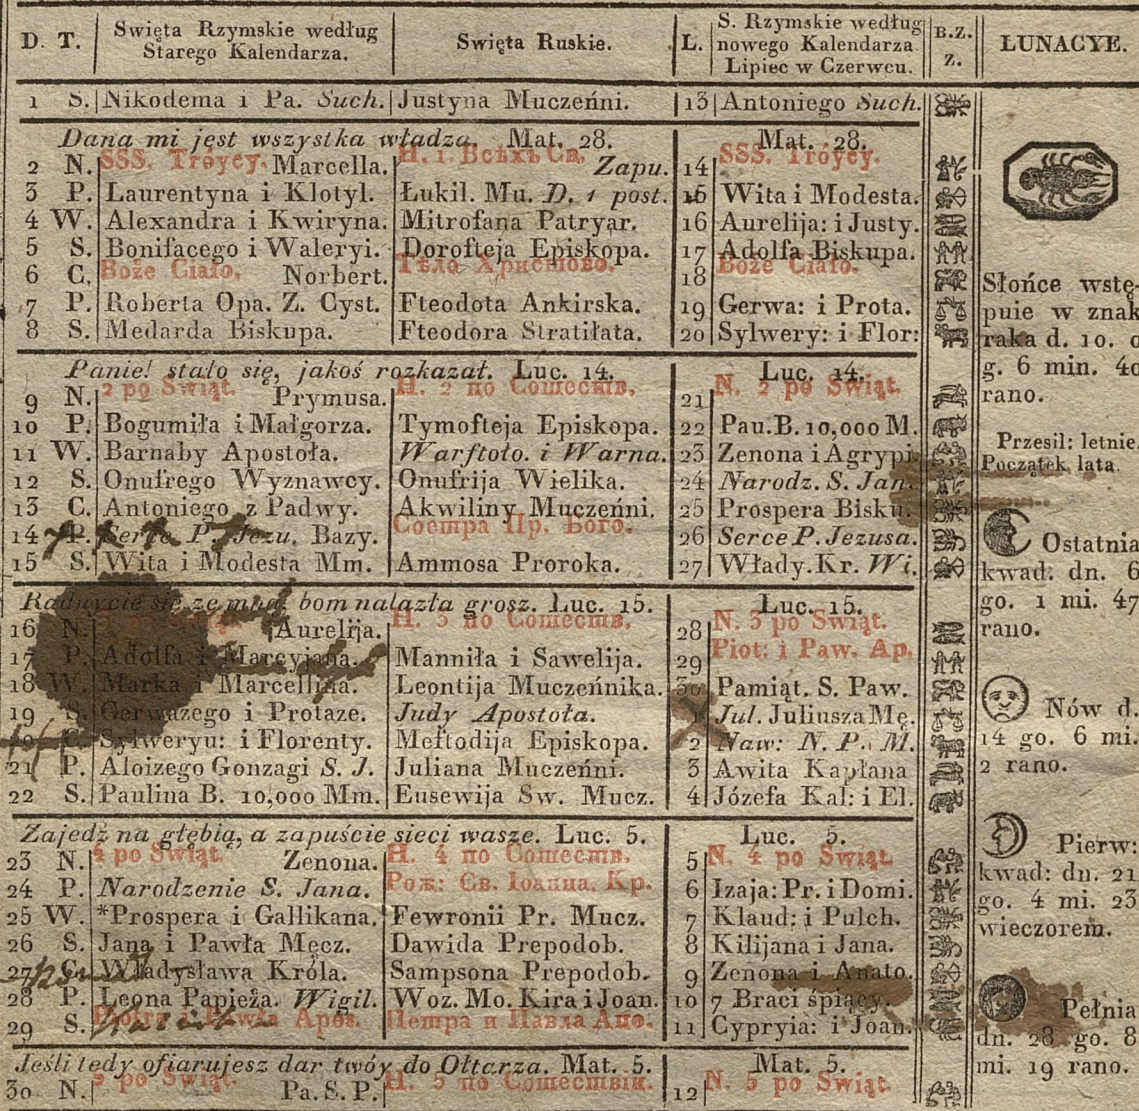 D. T. Swięta Rzymskie według Starego Kalendarza. Swięta Ruskie. L. S. Rzymskie według nowego Kalendarza Lipiec w Czerwcu. B.Z. Z. LUNACYE.
1 S. Nikodema i Pa. Such. Justyna Muczeńni. 13 Antoniego Such.
Dana mi jest wszystka władza. Mat. 28. Mat. 28.
2 N. SSS. Tróycy. Marcella. Н. 1 Всѣхъ Св. Zapu. 14 SSS. Tróycy.
3 P. Laurentyna i Klotyl. Łukil. Mu. D. 1 post. 15 Wita i Modesta.
4 W. Alexandra i Kwiryna. Mitrofana Patryar. 16 Aurelija: i Justy.
5 S. Bonifacego i Waleryi. Dorofteja Episkopa. 17 Adolfa Biskupa.
6 C. Boże Ciało. Norbert. Тѣло Христово. 18 Boże Ciało.
7 P. Roberta Opa. Z. Cyst. Fteodota Ankirska. 19 Gerwa: i Prota.
8 S. Medarda Biskupa. Fteodora Stratiłata. 20 Sylwery: i Flor:
Panie! stało się, jakoś rozkazał. Luc. 14. Luc. 14.
9 N. 2 po Swiąt. Prymusa. Н. 2 по Сошеств. 21 N. 2 po Swiąt.
10 P. Bogumiła i Małgorza. Tymofteja Episkopa. 22 Pau. B. 10,000 M.
11 W. Barnaby Apostoła. Warftoło. i Warna. 23 Zenona i Agrypi.
12 S. Onufrego Wyznawcy. Onufrija Wielika. 24 Narodz. S. Jan.
13 C. Antoniego z Padwy. Akwiliny Muczeńni. 25 Prospera Bisku.
14 P. Serce P. Jezu. Bazy. Соетра Пр. Бого. 26 Serce P. Jezusa.
15 S. Wita i Modesta Mm. Ammosa Proroka. 27 Włady. Kr. Wi.
Raduycie się ze mną, bom nalazła grosz. Luc. 15. Luc. 15.
16 N. Aurelija. Н. 3 по Сошеств. 28 N. 3 po Swiąt.
17 P. Adolfa i Marcyjana. Manniła i Sawelija. 29 Piot: i Paw. Ap.
18 W. Marka i Marcellina. Leontija Muczeńnika. 30 Pamiąt. S. Paw.
19 S. Gerwazego i Protaze. Judy Apostoła. 1 Jul. Juliusza Mę.
C. Sylweryu: i Florenty. Meftodija Episkopa. 2 Naw: N. P. M.
21 P. Aloizego Gonzagi S. J. Juliana Muczeńni. 3 Awita Kapłana
22 S. Paulina B. 10,000 Mm. Eusewija Sw. Mucz. 4 Józefa Kal: i El.
Zajedź na głębią, a zapuście sieci wasze. Luc. 5. Luc. 5.
23 N. 4 po Swiąt. Zenona. Н. 4 по Сошеств. 5 N. 4 po Swiąt.
24 P. Narodzenie S. Jana. Рож: Св. Іоанна. Кр. 6 Izaja: Pr. i Domi.
25 W. *Prospera i Gallikana. Fewronii Pr. Mucz. 7 Klaud: i Pulch.
26 S. Jana i Pawła Męcz. Dawida Prepodob. 8 Kilijana i Jana.
27 C. Władysława Króla. Sampsona Prepodob. 9 Zenona i Anato.
28 P. Leona Papieża. Wigil. Woz. Mo. Kira i Joan. 10 7 Braci śpiący.
29 S. Piotra i Pawła Apos. Петра и Павла Апо. 11 Cypryia: i Joan.
Jeśli tedy ofiarujesz dar twóy do Ołtarza. Mat. 5. Mat. 5.
30 N. 5 po Swiąt. Pa. S. P. Н. 5 по Сошествіи. 12 N. 5 po Swiąt.
Słońce wstę-
puie w znak
raka d. 10. o
g. 6 min. 40
rano.
Przesil: letnie.
Początek lata.
Ostatnia
kwad: dn. 6
go. 1 mi. 47
rano.
Nów d.
14 go. 6 mi.
2 rano.
Pierw:
kwad: dn. 21
go. 4 mi. 23
wieczorem.
Pełnia
dn. 28 go. 8
mi. 19 rano.